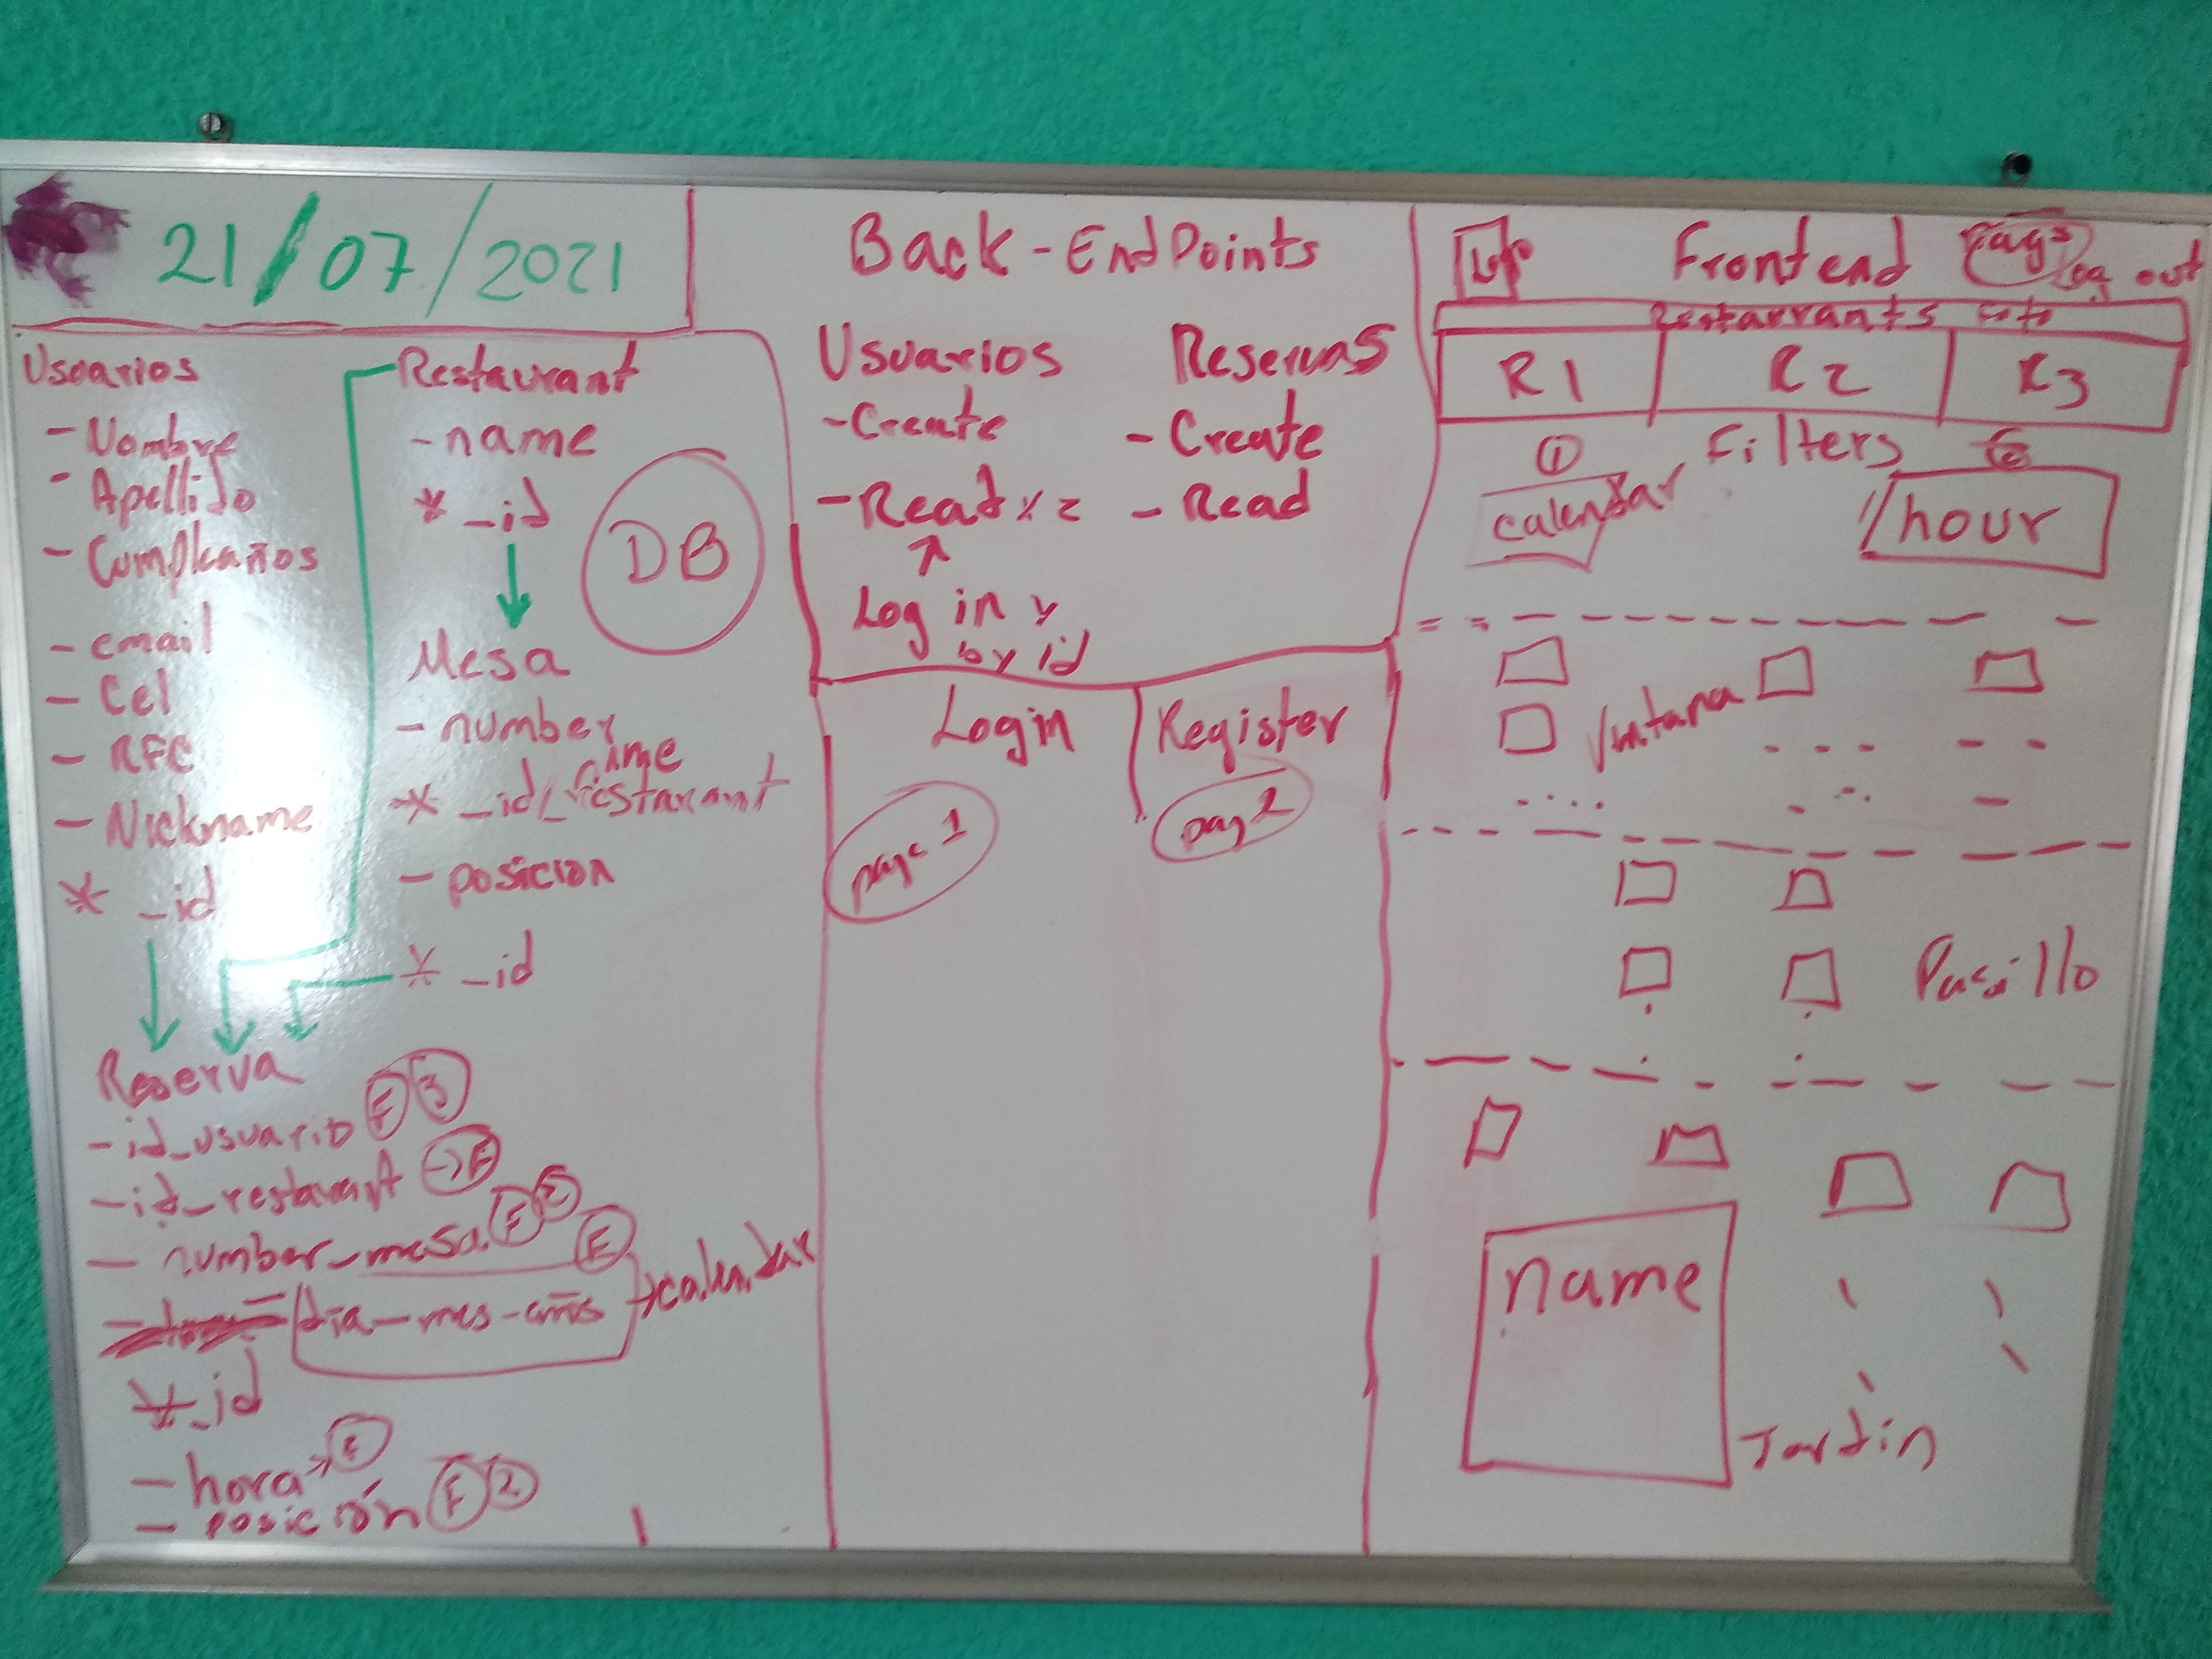 21/07/2021
Usuarios
- Nombre
- Apellido
- Cumpleaños
- email
- Cel
- RFC
- Nickname
* _id
Restaurant
- name
* _id
DB
Mesa
- number
* _id/
name
restaurant
- posicion
* _id
Reserva
- id_usuario F 3
- id_restaurant → F
- number_mesa F 2
dia-mes-años F → calendar
* _id
- hora →
- posición F 2
Back-EndPoints
Usuarios
- Create
- Read x 2
Log in y
by id
Reservas
- Create
- Read
Login
page 1
Register
pag 2
Frontend
pag 3
Log out
Restaurrants
R1
R2
R3
Filters
1
calendar
hour
Ventana
Pasillo
name
Jardin